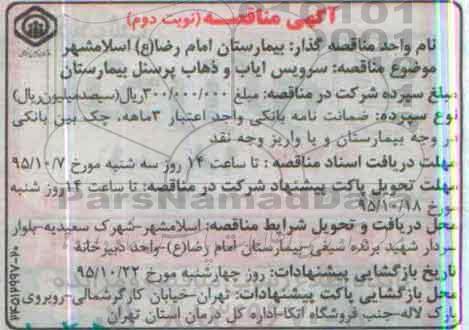 آگهی مناقصه (نوبت دوم)
نام واحد مناقصه گذار: بیمارستان امام رضا(ع) اسلامشهر
موضوع مناقصه: سرویس ایاب و ذهاب پرسنل بیمارستان
مبلغ سپرده شرکت در مناقصه: مبلغ ۳۰۰/۰۰۰/۰۰۰ریال(سیصدمیلیون‌ریال)
نوع سپرده: ضمانت نامه بانکی واجد اعتبار ۳ماهه، چک بین بانکی
در وجه بیمارستان و یا واریز وجه نقد
مهلت دریافت اسناد مناقصه : تا ساعت ۱۴ روز سه شنبه مورخ ۹۵/۱۰/۷
مهلت تحویل پاکت پیشنهاد شرکت در مناقصه: تا ساعت ۱۴روز شنبه
مورخ ۹۵/۱۰/۱۸
محل دریافت و تحویل شرایط مناقصه: اسلامشهر-شهرک سعیدیه-بلوار
سردار شهید برده شیغی-بیمارستان امام رضا(ع)-واحد دبیرخانه
تاریخ بازگشایی پیشنهادات: روز چهارشنبه مورخ ۹۵/۱۰/۲۲
محل بازگشایی پاکت پیشنهادات: تهران-خیابان کارگرشمالی-روبروی
پارک لاله-جنب فروشگاه اتکا-اداره کل درمان استان تهران
ParsNamadData